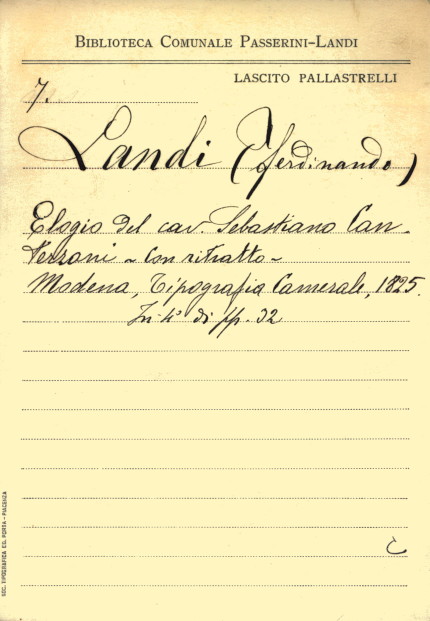 BIBLIOTECA COMUNALE PASSERINI-LANDI
LASCITO PALLASTRELLI
7.
Landi (Ferdinando)
Elogio del cav. Sebastiano Can-
terzani - con ritratto -
Modena, Tipografia Camerale, 1825.
In-4° di pp. 32
C
SOC. TIPOGRAFICA ED. PORTA - PIACENZA